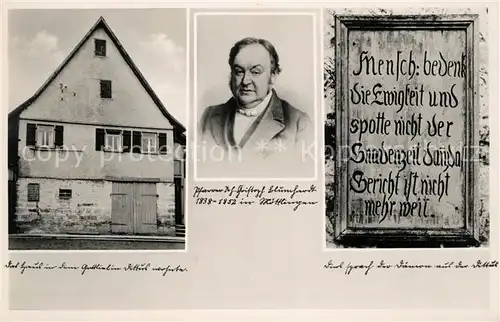 Mensch: bedenk
die Ewigkeit und
spotte nicht der
Gnadenzeit, dan das
Gericht ist nicht
mehr weit.
Pfarrer Joh. Christoph Blumhardt.
1838-1852 in Möttlingen
Das Haus in dem Gottliebin Dittus wohnte.
Dies sprach der Dämon aus der Dittus